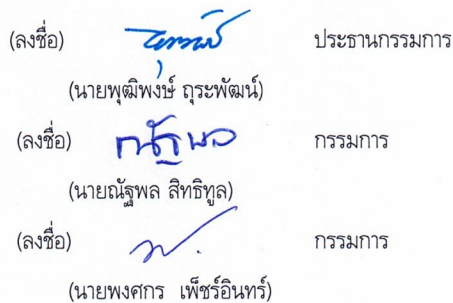 (ลงชื่อ) ประธานกรรมการ
(นายพุฒิพงษ์ ถุระพัฒน์)
(ลงชื่อ) ณัฐพล กรรมการ
(นายณัฐพล สิทธิทูล)
(ลงชื่อ) กรรมการ
(นายพงศกร เพ็ชร์อินทร์)